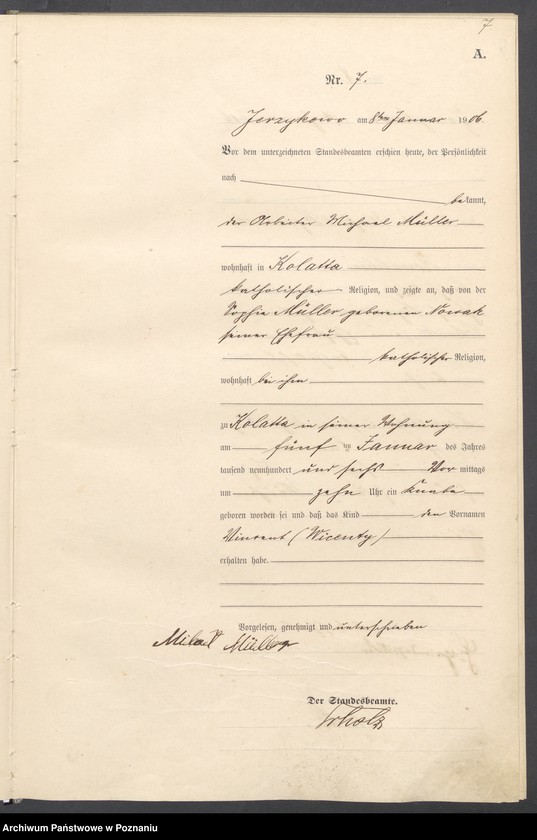 7
A.
Nr. 7.
Jerzykowo am 8ten Januar 1906.
Vor dem unterzeichneten Standesbeamten erschien heute, der Persönlichkeit
nach
bekannt,
der Arbeiter Michael Müller
wohnhaft in Kolatta
katholischer Religion, und zeigte an, daß von der
Sophie Müller geborenen Nowak
seiner Ehefrau
katholischer Religion,
wohnhaft bei ihm
zu Kolatta in seiner Wohnung
am fünf ten Januar des Jahres
tausend neunhundert und sechs Vor mittags
um zehn Uhr ein Knabe
geboren worden sei und daß das Kind den Vornamen
Vincent (Wicenty)
erhalten habe.
Vorgelesen, genehmigt und unterschrieben
Müller
Der Standesbeamte.
Archiwum Państwowe w Poznaniu